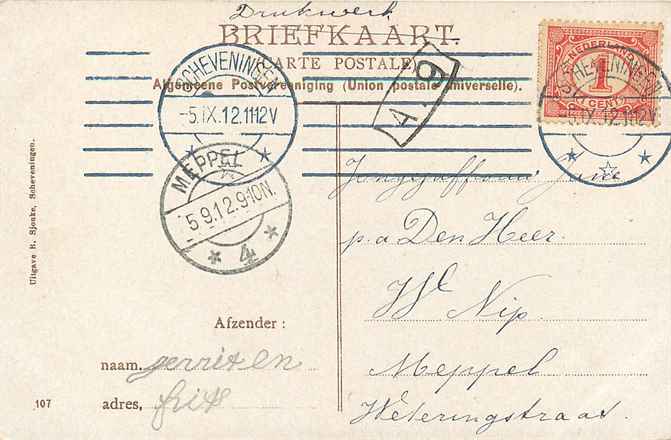 Drukwerk
BRIEFKAART.
(CARTE POSTALE)
Algemeene Postvereeniging (Union postale universelle).
SCHEVENINGEN
-5.IX.12.11-12V
A 9
NEDERLAND
1
CENT
SCHEVENINGEN
-5.IX.12.11-12V
MEPPEL
5.9.12.9-10N.
4
p.a Den Heer
W Nip
Meppel
Weteringstraat.
Uitgave R. Sjouke, Scheveningen.
Afzender :
naam, gerrit en
adres, frits
107